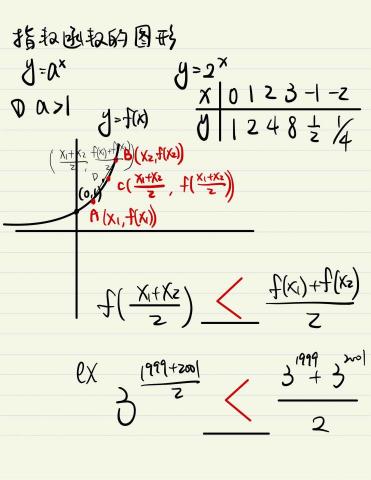 指数函数的图形
y=a^x
y=2^x
① a>1
x | 0 1 2 3 -1 -2
y | 1 2 4 8 1/2 1/4
y=f(x)
(x₁+x₂/2, f(x₁)+f(x₂)/2)
B(x₂,f(x₂))
D
C(x₁+x₂/2, f(x₁+x₂/2))
(0,1)
A(x₁,f(x₁))
f(x₁+x₂/2) < f(x₁)+f(x₂)/2
ex 3^(1999+2001/2) < 3^1999+3^2001/2